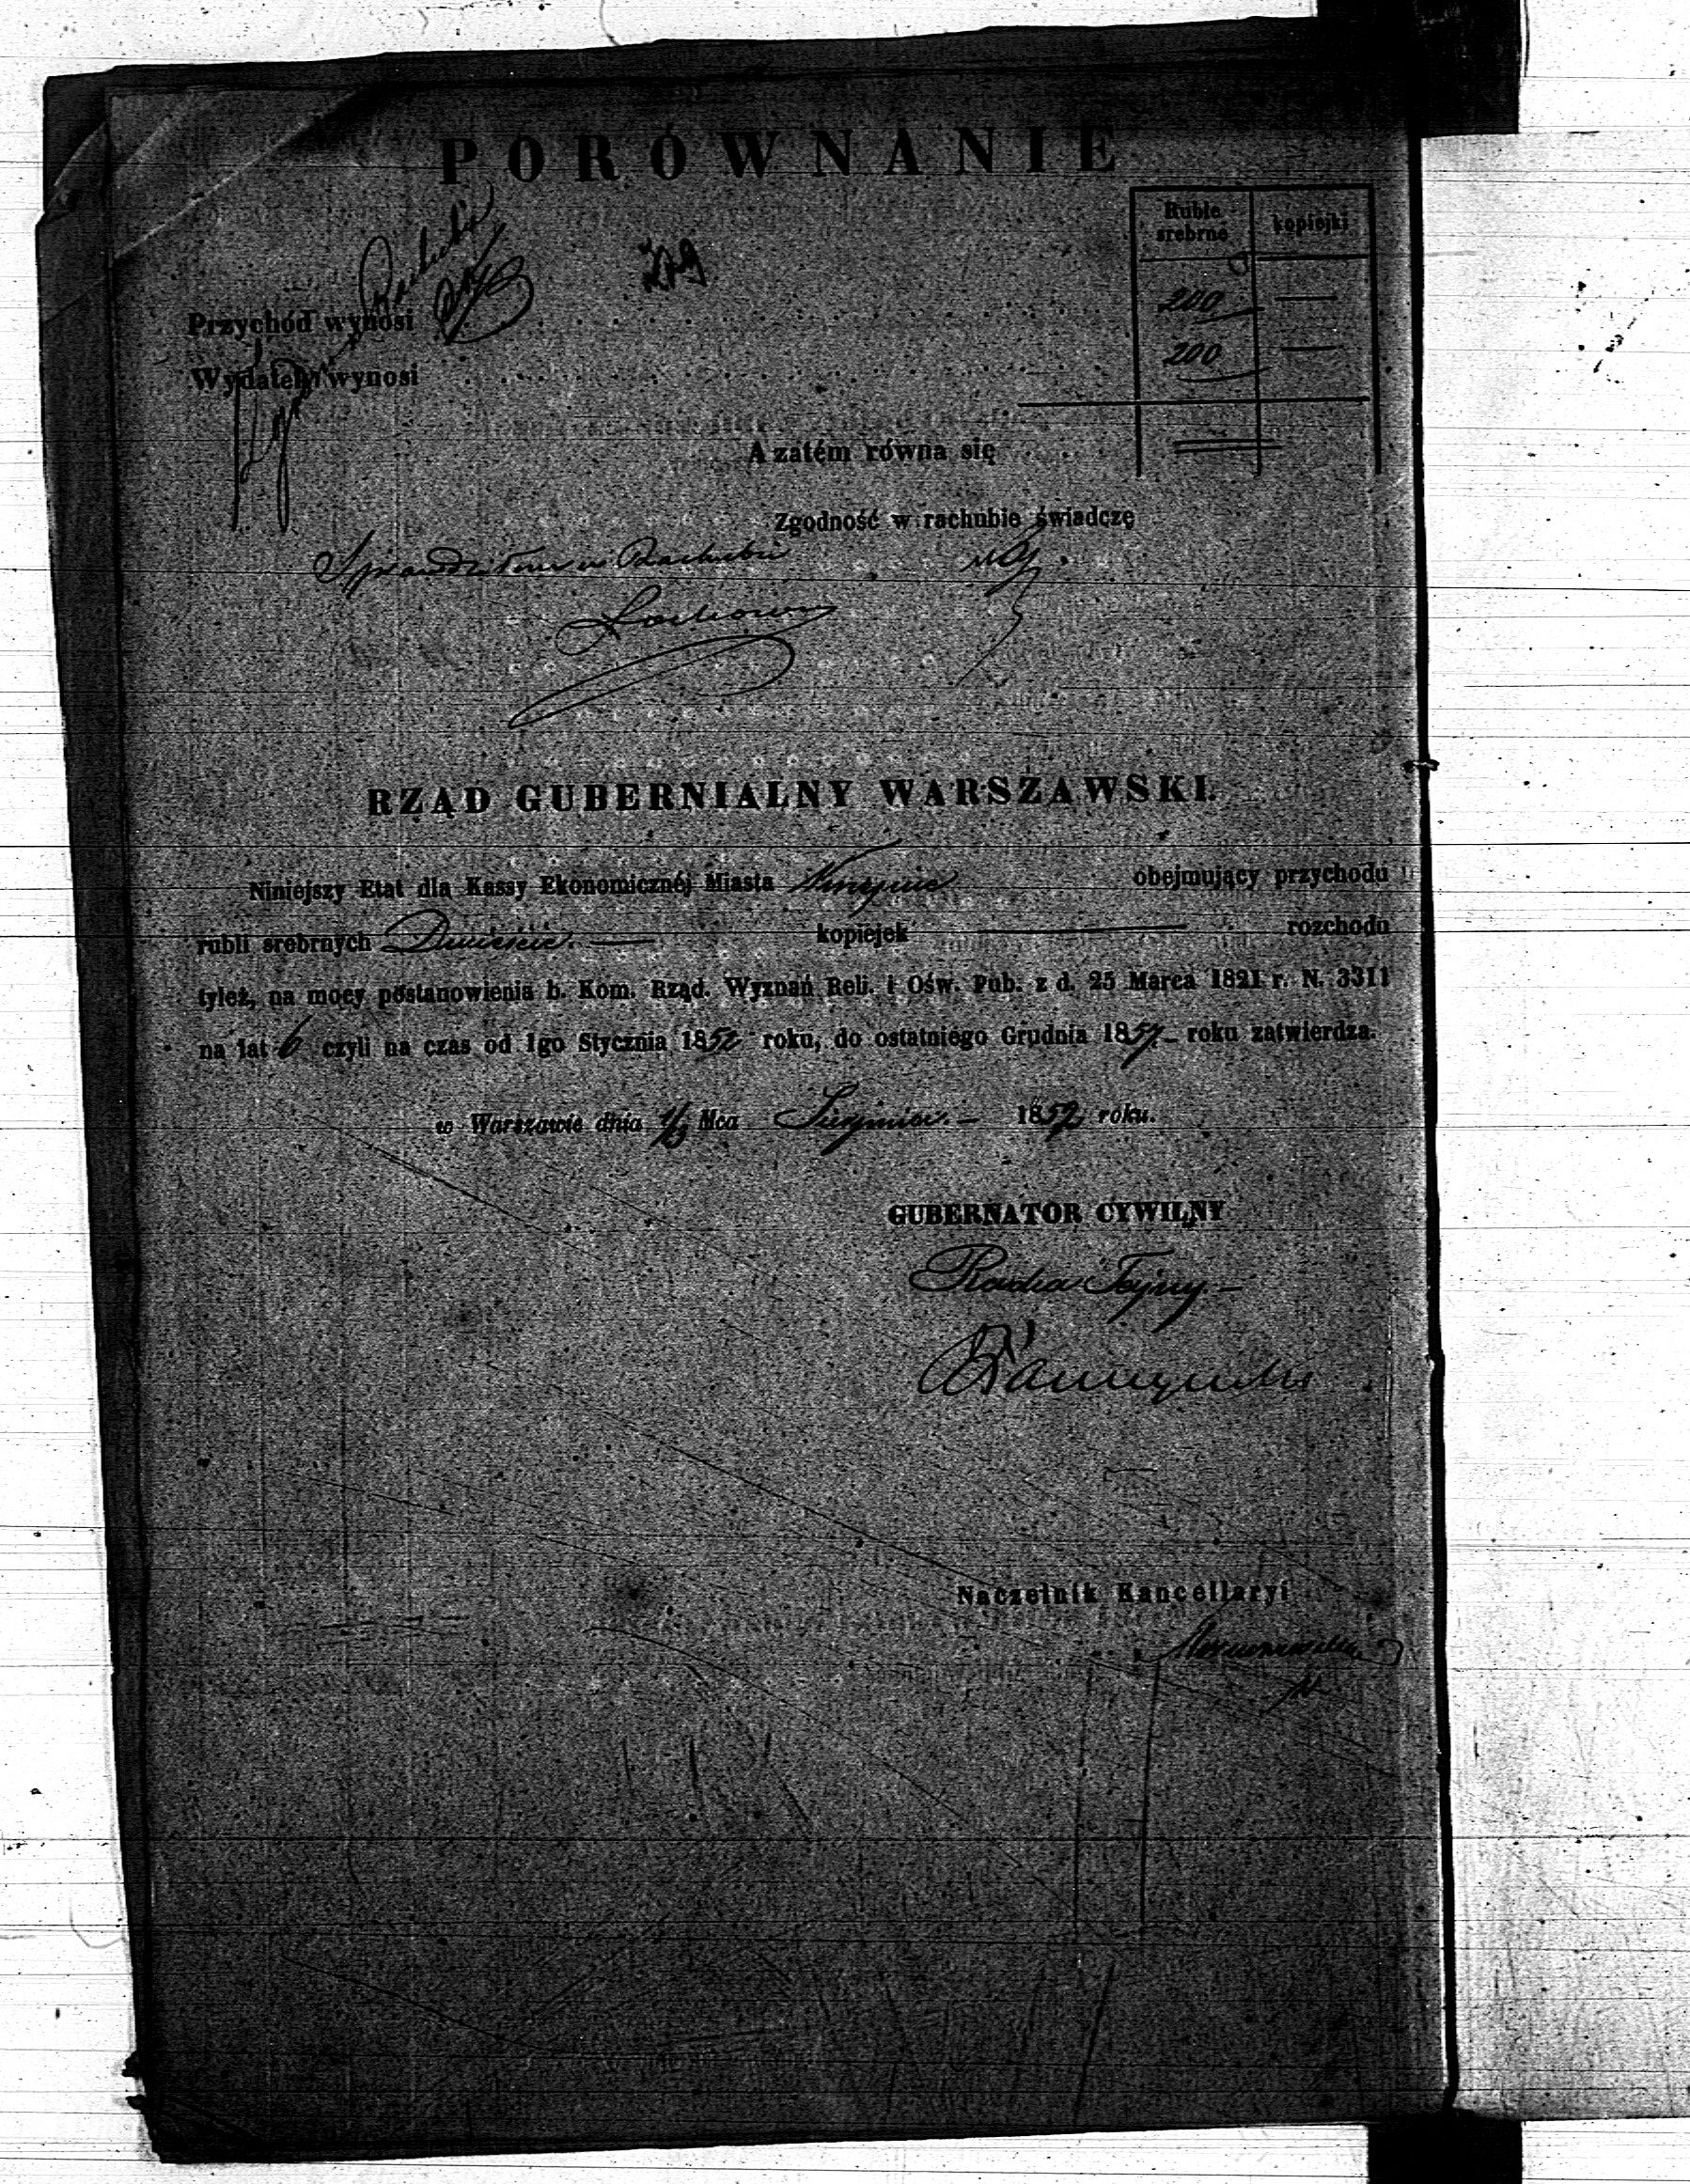 PORÓWNANIE
Ruble srebrne kopiejki
Przychód wynosi 200 —
Wydatek wynosi 200 —
A zatém równa się
Zgodność w rachubie świadczę
Sprawdziłem w Rachubie
RZĄD GUBERNIALNY WARSZAWSKI.
Niniejszy Etat dla Kassy Ekonomicznéj Miasta obejmujący przychodu
rubli srebrnych Dwieście. — kopiejek — rozchodu
tyleż, na mocy postanowienia b. Kom. Rząd. Wyznań Reli. i Ośw. Pub. z d. 25 Marca 1821 r. N. 3311
na lat 6 czyli na czas od 1go Stycznia 1852 roku, do ostatniego Grudnia 1857 roku zatwierdza.
w Warszawie dnia Mca Sierpnia. — 1852 roku.
GUBERNATOR CYWILNY
Radca Tajny. —
Naczelnik Kancellaryi